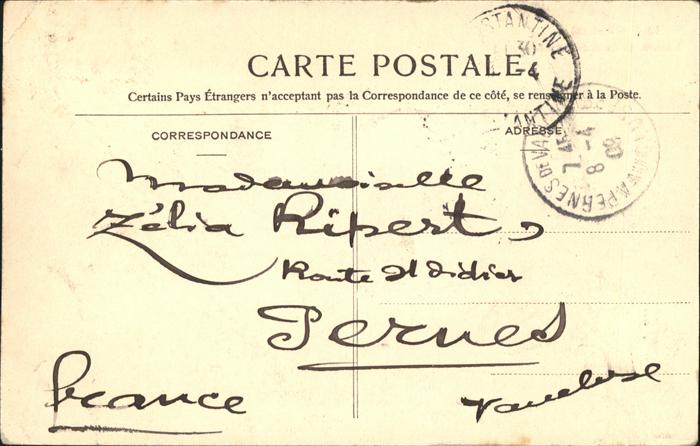 CARTE POSTALE
Certains Pays Étrangers n'acceptant pas la Correspondance de ce côté, se renseigner à la Poste.
CORRESPONDANCE
ADRESSE
CONSTANTINE
30
-4
CONSTANTINE
PERNES
7 45
8 -4
20
VAUCLUSE
Mademoiselle
Zélia Ripert,
Route St Didier
Pernes
France
Vaucluse